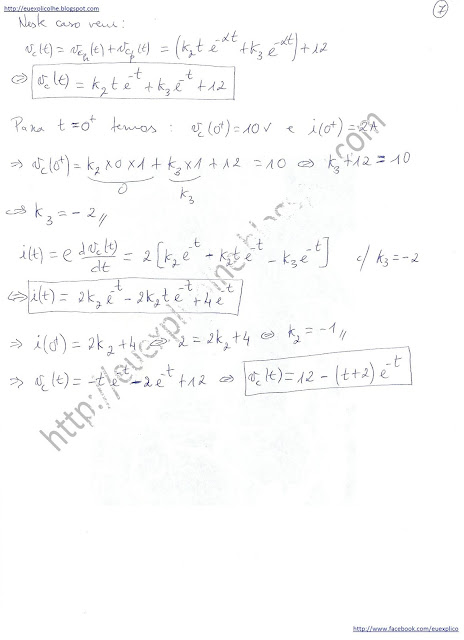 http://euexplicolhe.blogspot.com
7
Neste caso vem:
v_c(t) = v_ch(t) + v_cp(t) = (k₂ t e^(-αt) + k₃ e^(-αt)) + 12
⇔ v_c(t) = k₂ t e^(-t) + k₃ e^(-t) + 12
Para t = 0⁺ temos : v_c(0⁺) = 10V e i(0⁺) = 2A
⇒ v_c(0⁺) = k₂ × 0 × 1 + k₃ × 1 + 12 = 10 ⇔ k₃ + 12 = 10
0 k₃
⇔ k₃ = -2 //
i(t) = C dv_c(t)/dt = 2 [k₂ e^(-t) - k₂ t e^(-t) - k₃ e^(-t)] c/ k₃ = -2
⇔ i(t) = 2k₂ e^(-t) - 2k₂ t e^(-t) + 4 e^(-t)
⇒ i(0⁺) = 2k₂ + 4 ⇔ 2 = 2k₂ + 4 ⇔ k₂ = -1 //
⇒ v_c(t) = -t e^(-t) - 2 e^(-t) + 12 ⇔ v_c(t) = 12 - (t+2) e^(-t)
http://www.facebook.com/euexplico